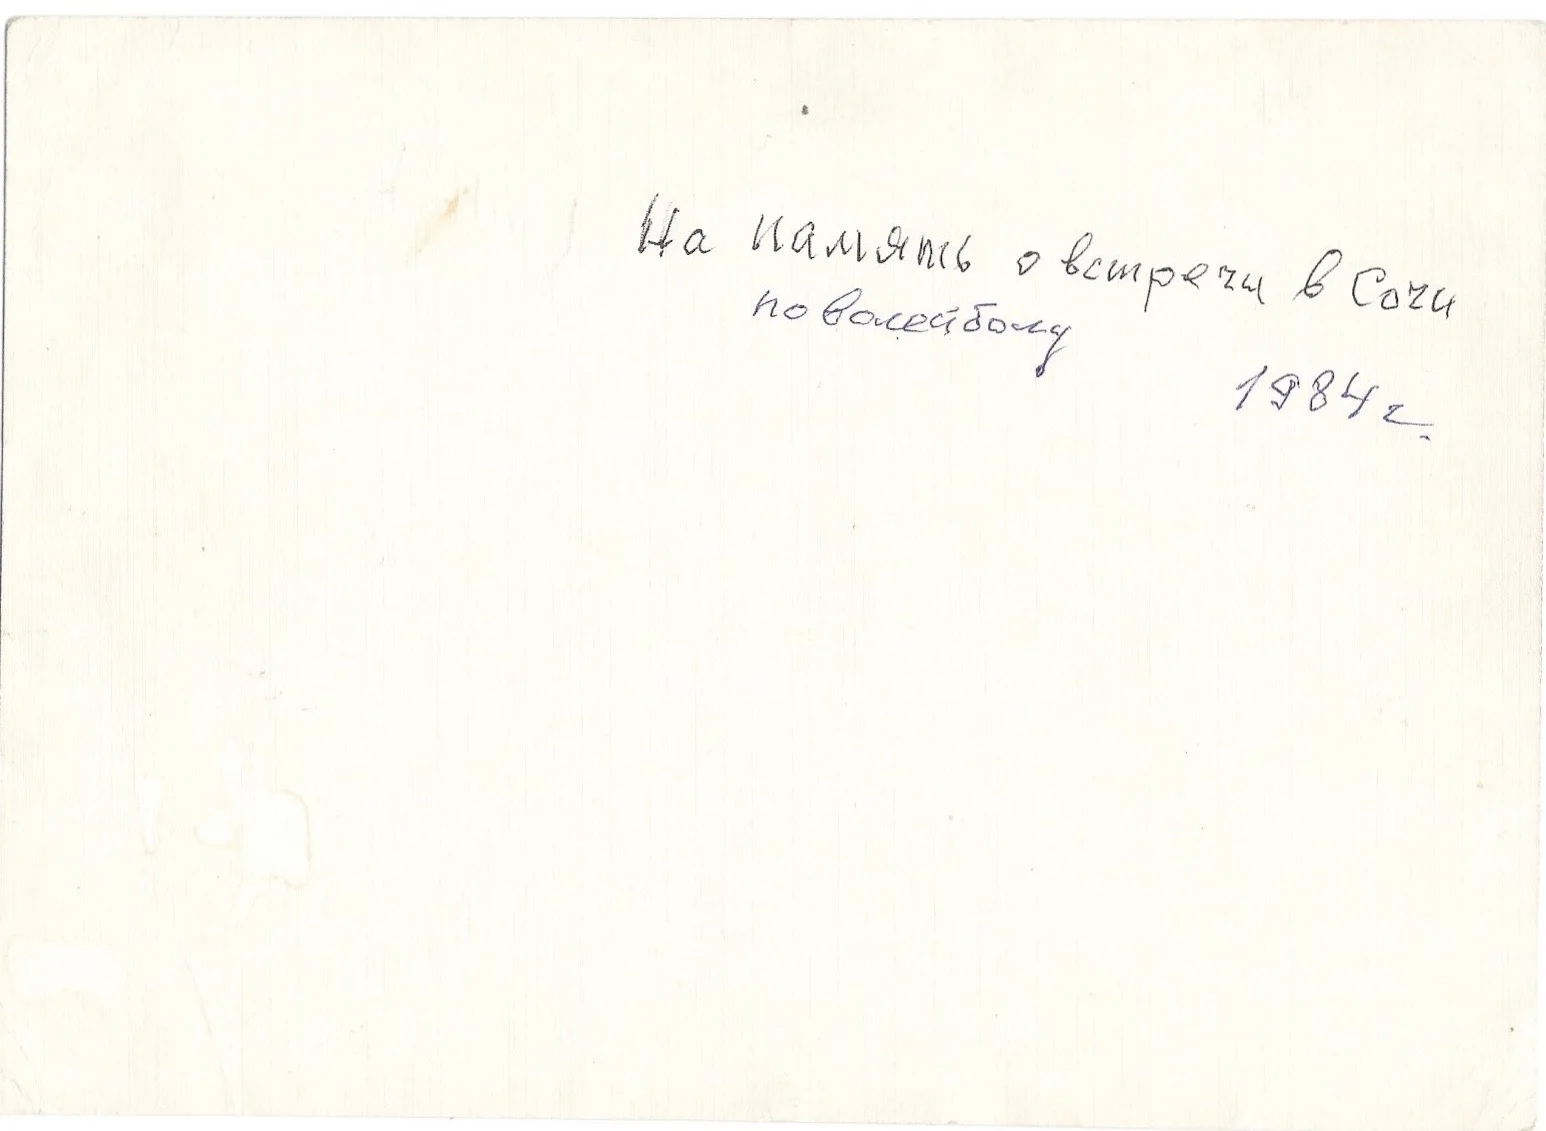 На память о встречи в Сочи
по волейболу
1984 г.